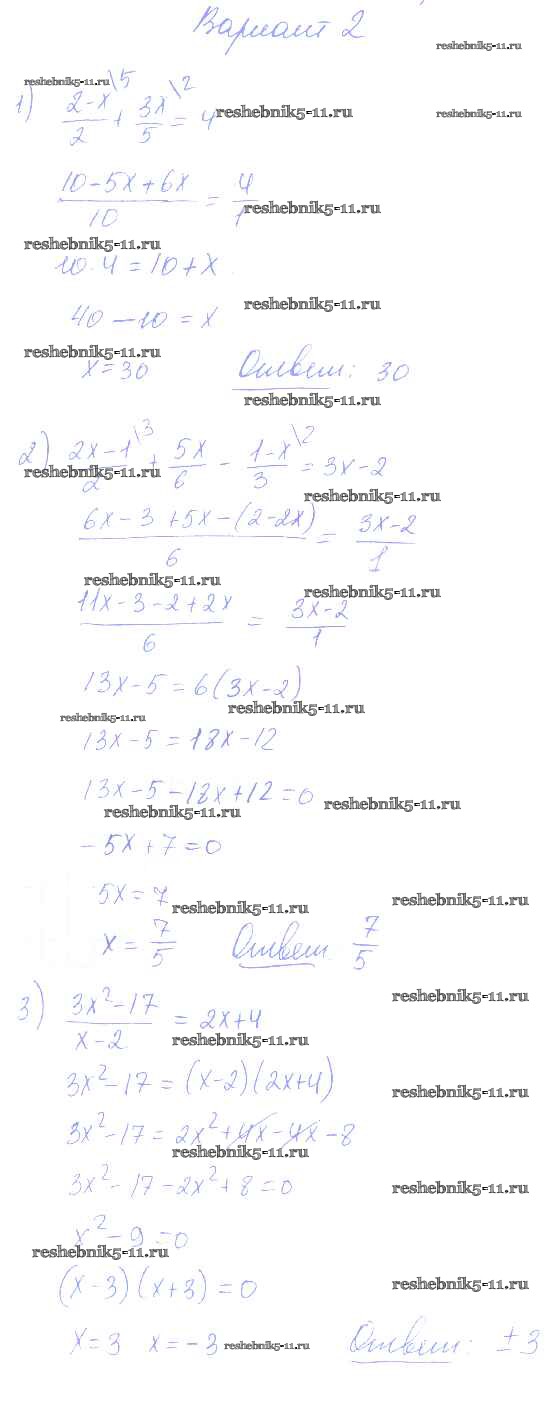 Вариант 2
reshebnik5-11.ru
reshebnik5-11.ru
1) (2-x)/2 \5 + 3x/5 \2 = 4
reshebnik5-11.ru
reshebnik5-11.ru
(10-5x+6x)/10 = 4/1
reshebnik5-11.ru
reshebnik5-11.ru
10·4 = 10+x
40-10 = x
reshebnik5-11.ru
reshebnik5-11.ru
x = 30 Ответ: 30
reshebnik5-11.ru
2) (2x-1)/2 \3 + 5x/6 - (1-x)/3 \2 = 3x-2
reshebnik5-11.ru
reshebnik5-11.ru
(6x-3+5x-(2-2x))/6 = (3x-2)/1
reshebnik5-11.ru
reshebnik5-11.ru
(11x-3-2+2x)/6 = (3x-2)/1
13x-5 = 6(3x-2)
reshebnik5-11.ru
reshebnik5-11.ru
13x-5 = 18x-12
13x-5-18x+12 = 0
reshebnik5-11.ru
reshebnik5-11.ru
-5x+7 = 0
5x = 7
reshebnik5-11.ru
reshebnik5-11.ru
x = 7/5 Ответ: 7/5
reshebnik5-11.ru
3) (3x²-17)/(x-2) = 2x+4
reshebnik5-11.ru
3x²-17 = (x-2)(2x+4)
reshebnik5-11.ru
3x²-17 = 2x²+4x-4x-8
reshebnik5-11.ru
3x²-17-2x²+8 = 0
reshebnik5-11.ru
x²-9 = 0
reshebnik5-11.ru
(x-3)(x+3) = 0
reshebnik5-11.ru
x = 3 x = -3 Ответ: ±3
reshebnik5-11.ru